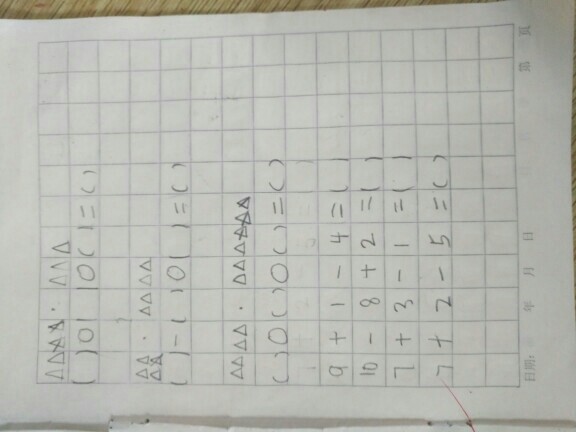 △△△△. △△△
( )○( )○( )=( )
△△. △△△△
△△
( )-( )○( )=( )
△△△△. △△△△△△
( )○( )○( )=( )
9+1-4=( )
10-8+2=( )
7+3-1=( )
7+2-5=( )
日期: 年 月 日 第 页